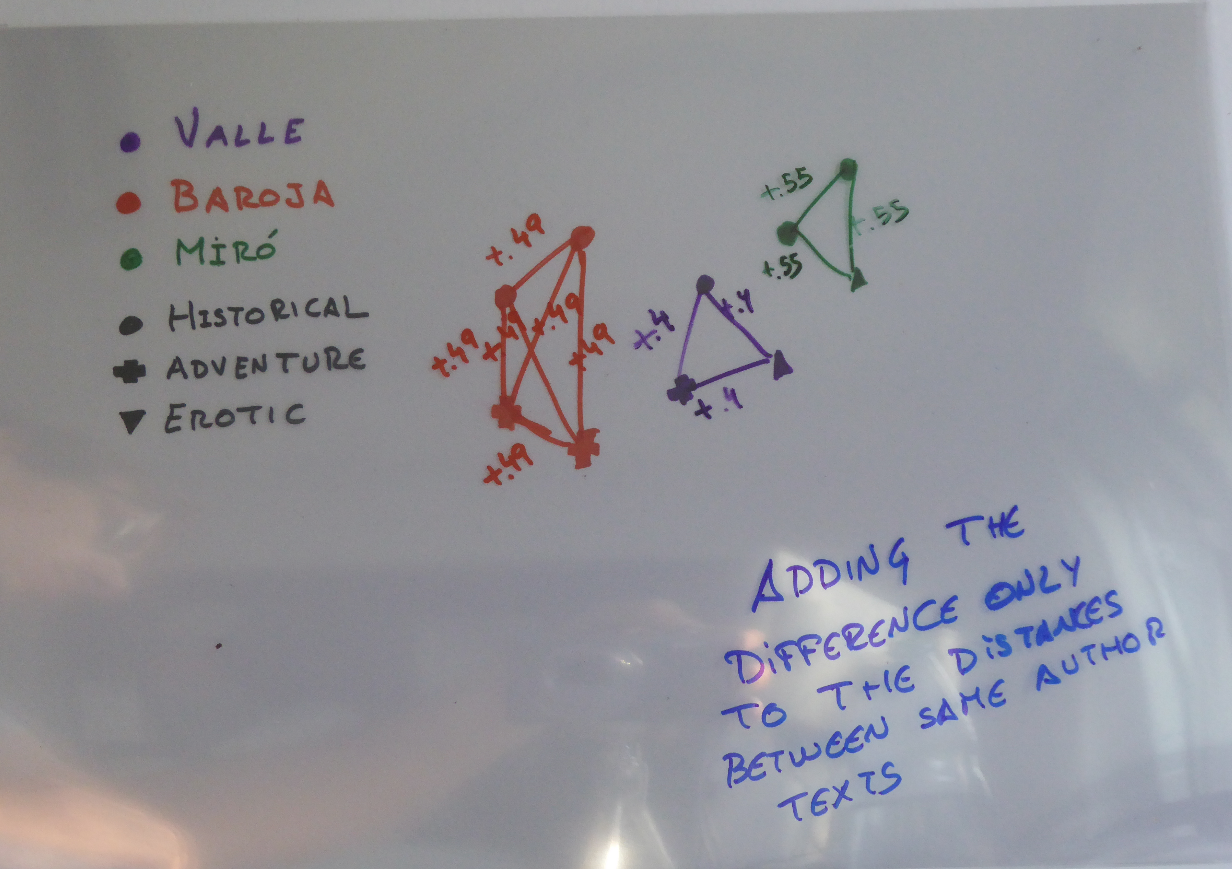 VALLE
BAROJA
MİRÓ
HISTORICAL
ADVENTURE
EROTIC
+.49
+.49
+.49
+.49
+.49
+.49
+.4
+.4
+.4
+.55
+.55
+.55
ADDING THE
DIFFERENCE ONLY
TO THE DISTANCES
BETWEEN SAME AUTHOR
TEXTS